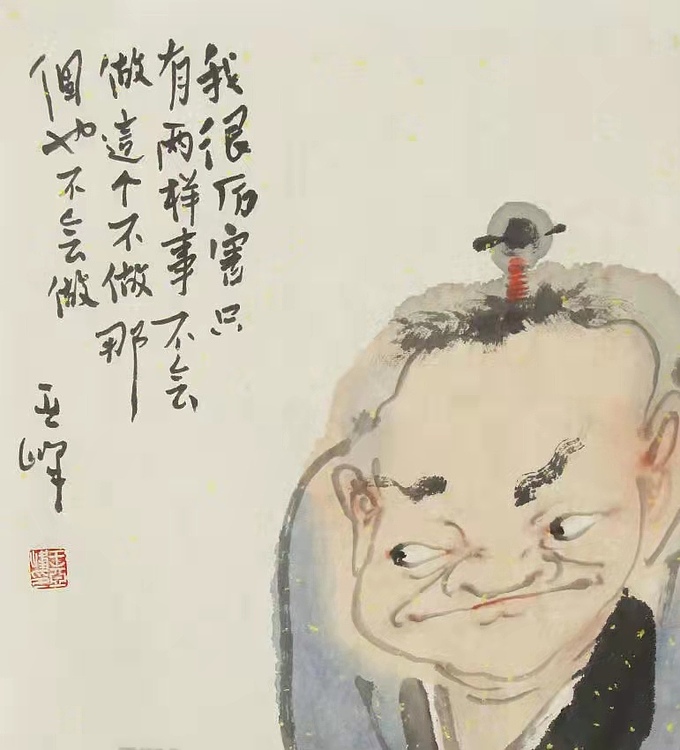 我很历害只
有两样事不会
做這个不做那
個也不会做
亚峰